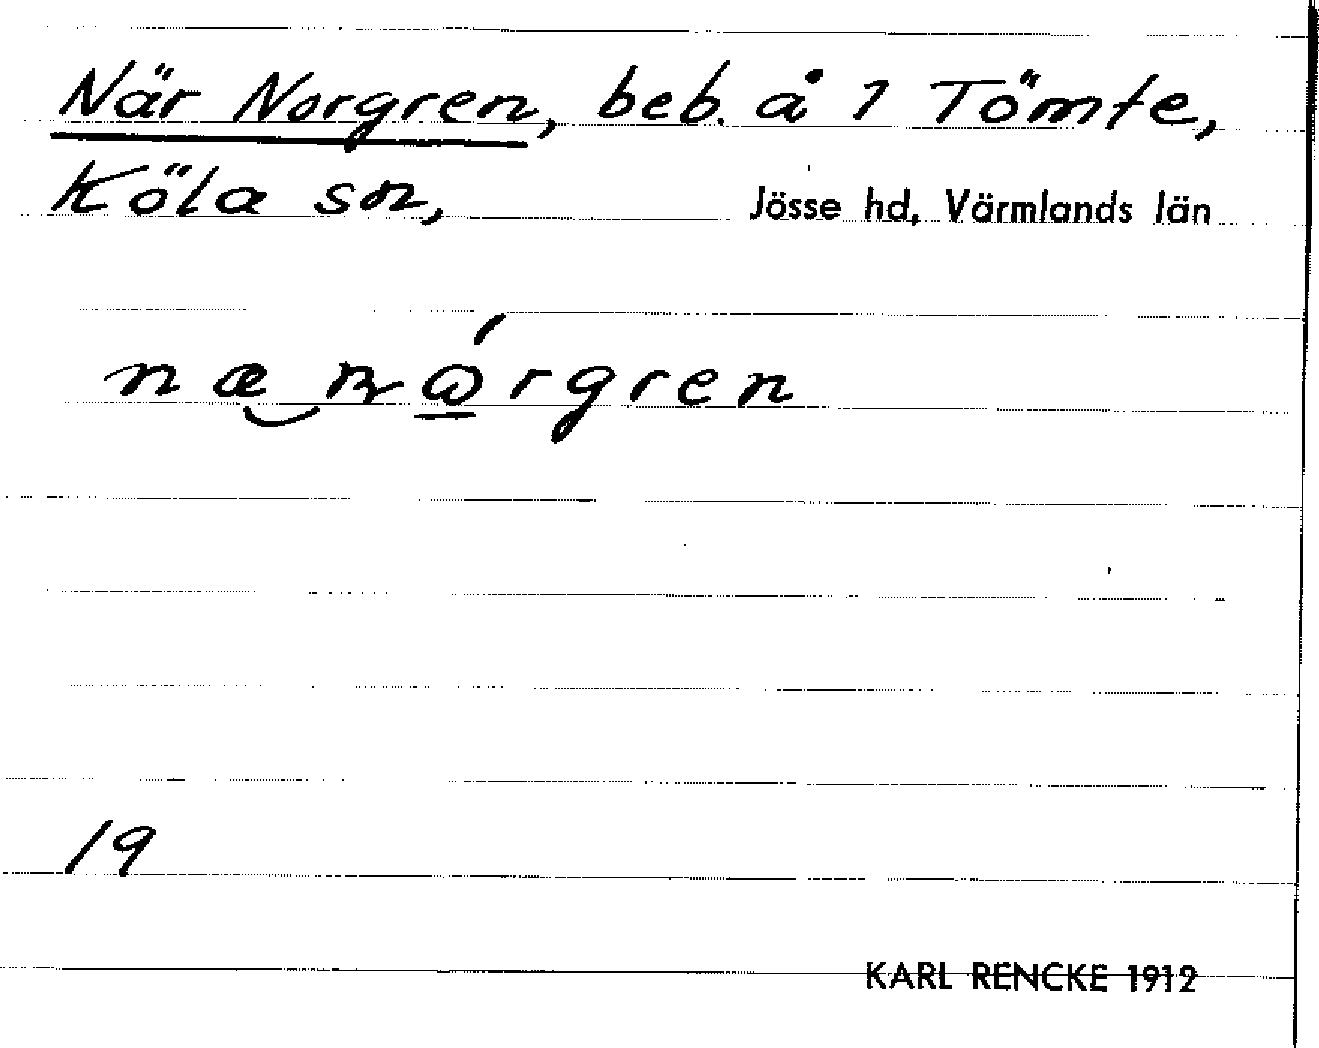 När Norgren, beb. å 1 Tömte,
Köla sn, Jösse hd, Värmlands län
næ nώrgren
19
KARL RENCKE 1912